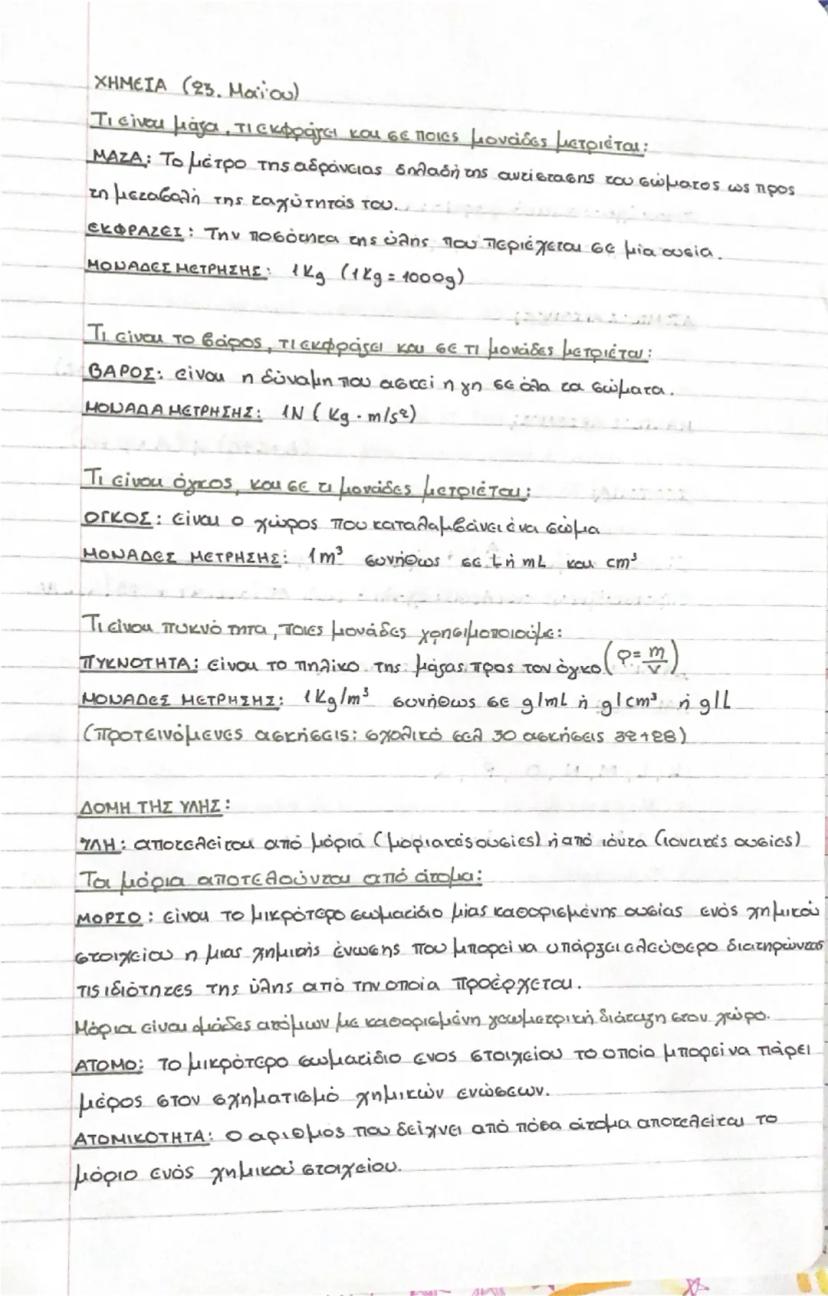 ΧΗΜΕΙΑ (23. Μαΐου)
Τι είναι μάζα, τι εκφράζει και σε ποιες μονάδες μετριέται:
ΜΑΖΑ: Το μέτρο της αδράνειας δηλαδή της αντίστασης του σώματος ως προς
τη μεταβολή της ταχύτητάς του.
ΕΚΦΡΑΖΕΙ: Την ποσότητα της ύλης που περιέχεται σε μία ουσία.
ΜΟΝΑΔΕΣ ΜΕΤΡΗΣΗΣ: 1Kg (1Kg = 1000g)
Τι είναι το βάρος, τι εκφράζει και σε τι μονάδες μετριέται:
ΒΑΡΟΣ: είναι η δύναμη που ασκεί η γη σε όλα τα σώματα.
ΜΟΝΑΔΑ ΜΕΤΡΗΣΗΣ: 1N (Kg · m/s²)
Τι είναι όγκος, και σε τι μονάδες μετριέται:
ΟΓΚΟΣ: είναι ο χώρος που καταλαμβάνει ένα σώμα
ΜΟΝΑΔΕΣ ΜΕΤΡΗΣΗΣ: 1m³ συνήθως σε L ή mL και cm³
Τι είναι πυκνότητα, ποιες μονάδες χρησιμοποιούμε:
ΠΥΚΝΟΤΗΤΑ: είναι το πηλίκο της μάζας προς τον όγκο (ρ = m/v)
ΜΟΝΑΔΕΣ ΜΕΤΡΗΣΗΣ: 1Kg/m³ συνήθως σε g/mL ή g/cm³ ή g/L
(προτεινόμενες ασκήσεις: σχολικό σελ 30 ασκήσεις 32+28)
ΔΟΜΗ ΤΗΣ ΥΛΗΣ:
ΎΛΗ: αποτελείται από μόρια (μοριακές ουσίες) ή από ιόντα (ιοντικές ουσίες)
Τα μόρια αποτελούνται από άτομα:
ΜΟΡΙΟ: είναι το μικρότερο σωματίδιο μίας καθορισμένης ουσίας ενός χημικού
στοιχείου η μιας χημικής ένωσης που μπορεί να υπάρξει ελεύθερο διατηρώντας
τις ιδιότητες της ύλης από την οποία προέρχεται.
Μόρια είναι ομάδες ατόμων με καθορισμένη γεωμετρική διάταξη στον χώρο.
ΑΤΟΜΟ: το μικρότερο σωματίδιο ενος στοιχείου το οποίο μπορεί να πάρει
μέρος στον σχηματισμό χημικών ενώσεων.
ΑΤΟΜΙΚΟΤΗΤΑ: ο αριθμος που δείχνει από πόσα άτομα αποτελείται το
μόριο ενός χημικού στοιχείου.